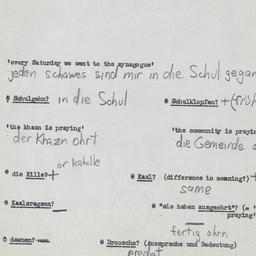 'every Saturday we went to the synagogue'
jeden schawes sind mir in die Schul gegan
Schulgehn? in die Schul
Schulklopfen? + (früh
'the khazn is praying'
der Khazn ohrt
'the community is prayin
die Gemeinde
or kehille
die Kille? +
Kaal? (difference in meaning?)
same
Kaalsragsen?
"sie haben ausgeohrt"? (= '
praying'
fertig ohrn
dawnen?
Droosche? (Aussprache und Bedeutung)
predigt